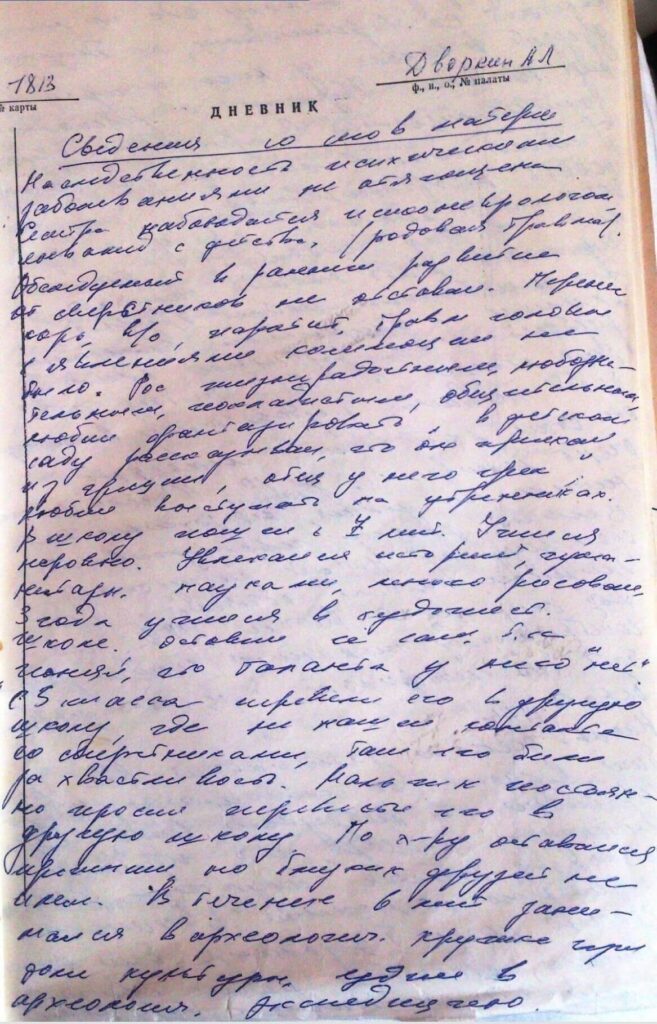 1813
№ карты
Дворкин А Л
ф., и., о., № палаты
ДНЕВНИК
Сведения со слов матери
Наследственность психическими
заболеваниями не отягощена
Сестра наблюдается психоневрологом,
с детства, (родовая травма).
Обследуемый в раннем развитии
от сверстников не отставал. Перенес
корь, в/о, паротит, травм головы
с явлениями коммоции не
было. Рос жизнерадостным, любозна-
тельным, общительным,
любил фантазировать, в детском
саду рассказывал, что он приехал
из Греции, отец у него грек"
любил выступать на утренниках.
В школу пошел с лет. Учился
неровно. Увлекался историей, гума-
нитарн. науками, много рисовал,
3 года учился в художест.
школе. оставил ее сам, т.к.
понял, что таланта у него "нет".
С 5 класса перевели его в другую
школу, где не нашел контакта
со сверстниками, там его били
за хвастливость. Мальчик постоян-
но просил перевести его в
другую школу. По х-ру оставался
прежним но близких друзей не
имел. В течение лет зани-
мался в археологич. кружке при
доме культуры, ездил в
археологич. экспедицию.